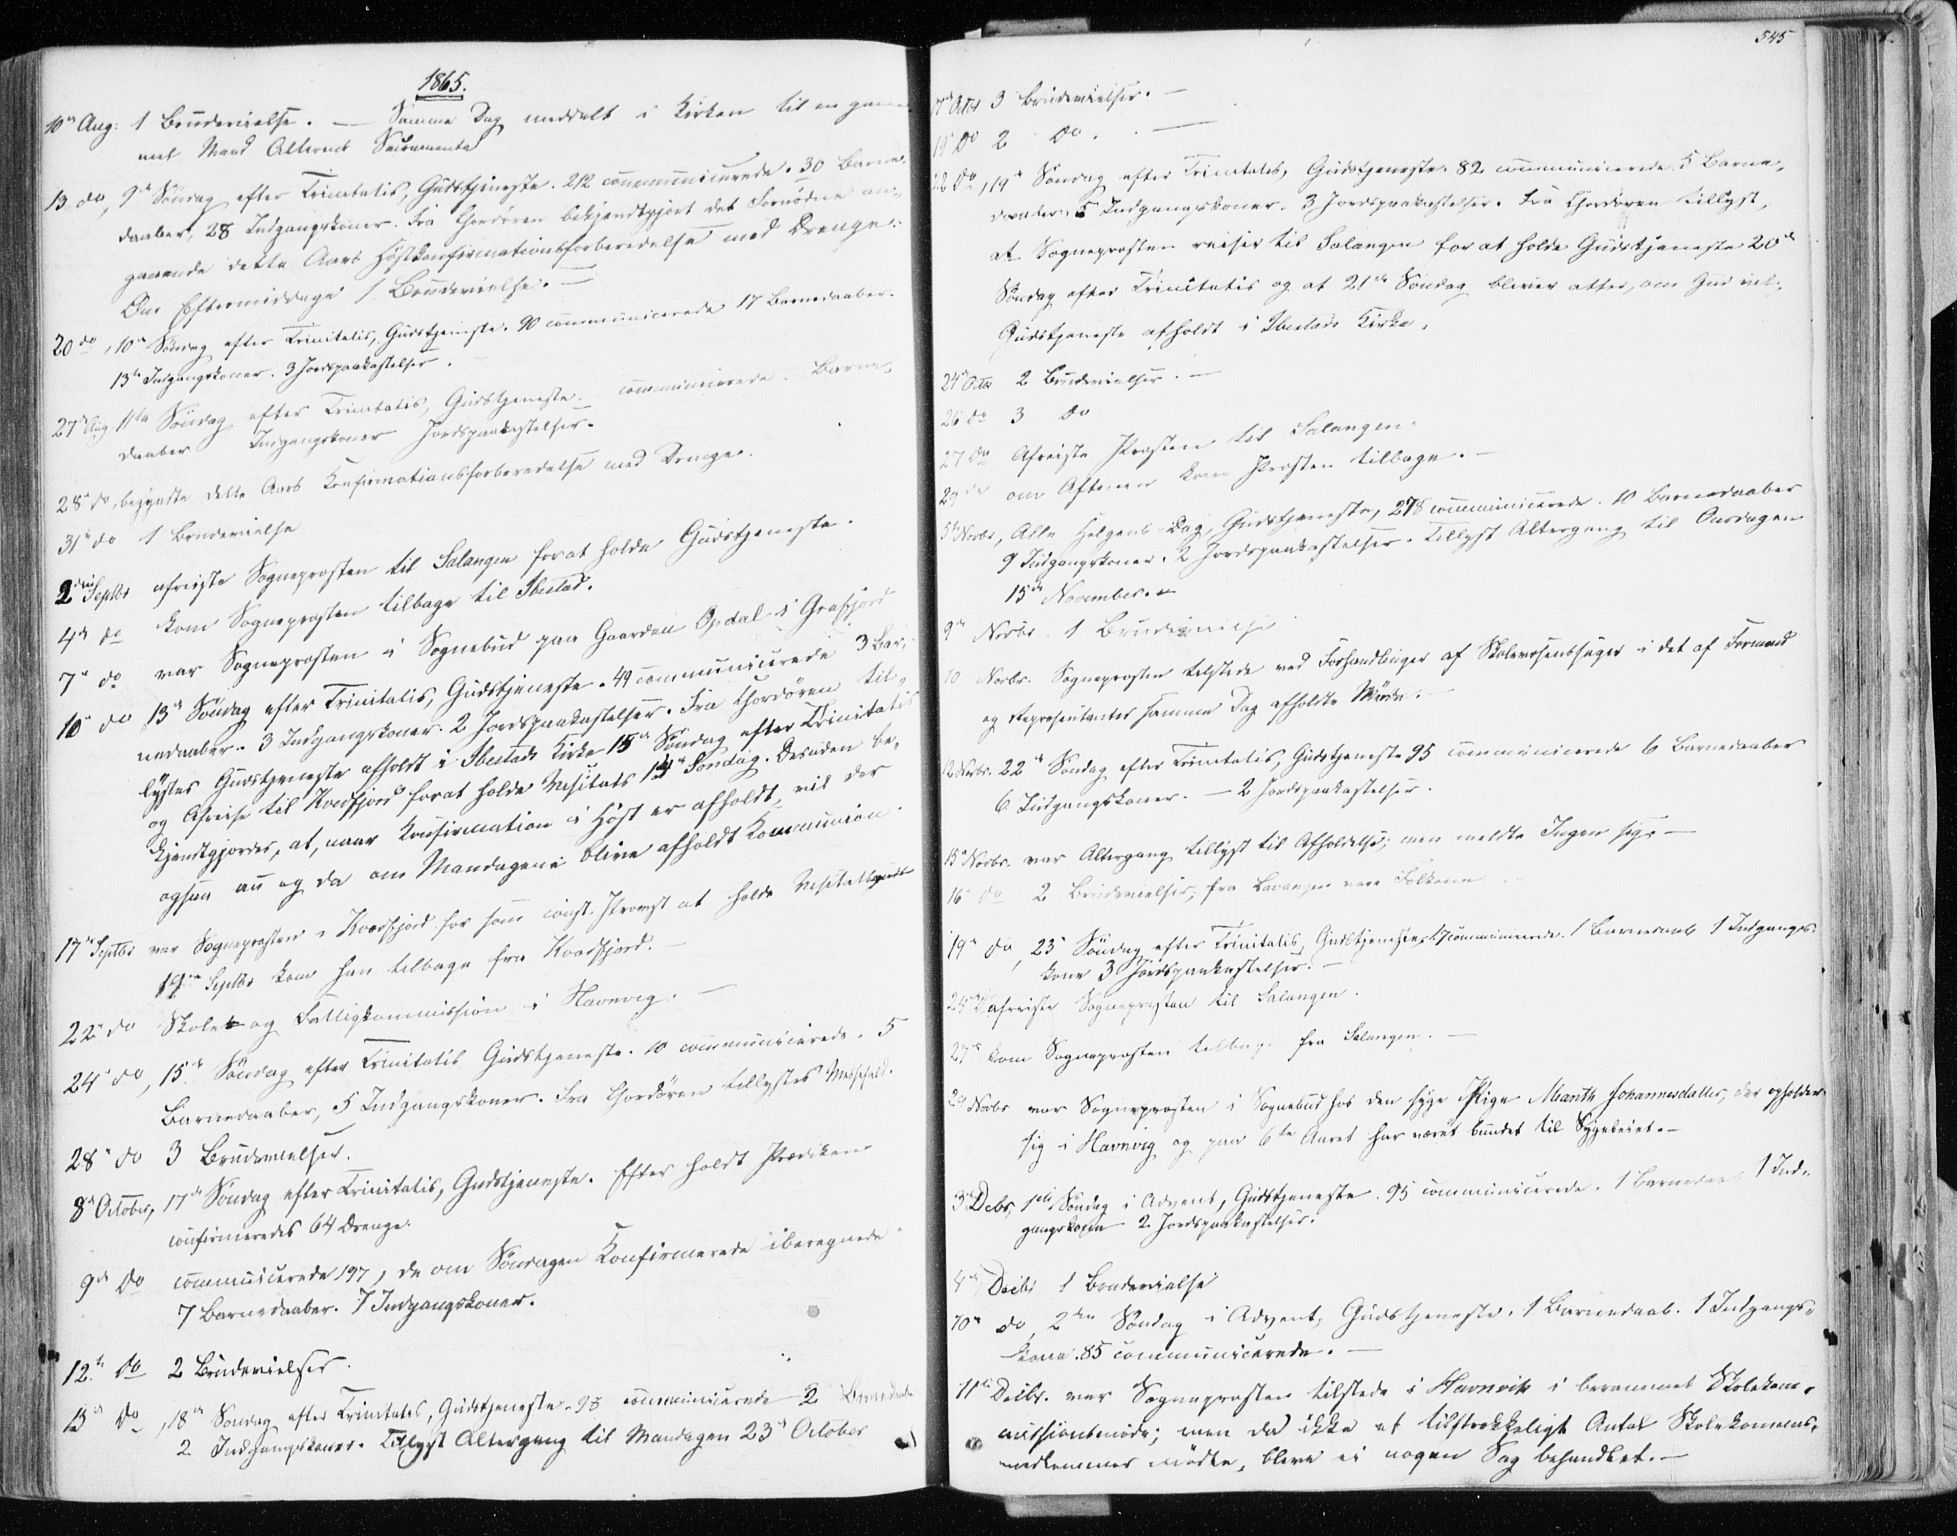 1865.
10de Aug: 1 Brudevielse. — Samme Dag meddelt i Kirken til en gam-
mel Mand Alterens Sacramente
13 do, 9de Søndag efter Trinitatis, Gudstjeneste. 212 communicerede. 30 Barne-
daaber, 28 Indgangskoner. Fra Chordøren bekjendtgjort det Fornødne an-
gaaende dette Aars Høstkonfirmationsforberedelse med Drenge.
Om Eftermiddage 1 Brudevielse. —
20 do, 10de Søndag efter Trinitatis, Gudstjeneste. 90 communicerede 17 Barnedaaber.
13 Indgangskoner. 3 Jordspaakastelser.
27de Aug. 11te Søndag efter Trinitatis, Gudstjeneste. communicerede. Barne-
daaber Indgangskoner Jordspaakastelser.
28de do, begyndte dette Aars Konfirmationsforberedelse med Drenge.
31te do 1 Brudevielse
2den Septbr afreiste Sogneprosten til Salangen forat holde Gudstjeneste.
4de do kom Sogneprosten tilbage til Ibestad.
7de do var Sogneprosten i Sognebud paa Gaarden Opdal i Grafjord
10de do 13de Søndag efter Trinitatis, Gudstjeneste. 49 communicerede 3 Bar-
nedaaber. 3 Indgangskoner. 2 Jordspaakastelser. Fra Chordøren til-
lystes Gudstjeneste afholdt i Ibestads Kirke 15de Søndag efter Trinitatis
og Afreise til Kvædfjord forat holde Visitats 14de Søndag. Desuden be-
kjendtgjordes, at, naar Konfirmation i Høst er afholdt, vil der
ogsaa nu og da om Mandagene blive afholdt Kommunion
17de Septbr var Sogneprosten i Kvædfjord for som const. Provst at holde Visitats
19de Septbr kom han tilbage fra Kvædfjord. —
22de do Skole og Fattigkommission i Havnvig. —
24de do, 15de Søndag efter Trinitatis Gudstjeneste. 10 communicerede. 5
Barnedaaber, 5 Indgangskoner. Fra Chordøren tillystes Messefald.
28de do 3 Brudevielser.
8de October, 17de Søndag efter Trinitatis, Gudstjeneste. Efter holdt Prædiken
confirmeredes 64 Drenge.
9de do communicerede 197, de om Søndagen Konfirmerede iberegnede
7 Barnedaaber. 7 Indgangskoner.
12te do 2 Brudevielser.
15de do, 18de Søndag efter Trinitatis, Gudstjeneste. 93 communicerede 2 Barnedaabe
2 Indgangskoner. Tillyst Altergang til Mandagen 23de October
545
17de Octbr 3 Brudevielser. —
19 do 2 do. —
22 do, 19de Søndag efter Trinitatis, Gudstjeneste. 82 communicerede. 5 Barne-
daaber. 5 Indgangskoner. 3 Jordspaakastelser. Fra Chordøren tillyst,
at Sogneprosten reiser til Salangen for at holde Gudstjeneste 20de
Søndag efter Trinitatis og at 21de Søndag bliver atter, om Gud vil,
Gudstjeneste afholdt i Ibestads Kirke.
24de Octbr 2 Brudevielser. —
26 do 3 do
27 do Afreiste Prosten til Salangen.
29 do om Aftenen kom Prosten tilbage. —
5te Novbr, Alle Helgens-Dag, Gudstjeneste, 278 communicerede. 10 Barnedaaber
9 Indgangskoner. 2 Jordspaakastelser. Tillyst Altergang til Onsdagen
15de November. —
9de Novbr. 1 Brudevielse
10 Novbr. Sogneprosten tilstede ved Forhandlinger af Skolevæsenssager i det af Formænd
og Repræsentanter samme Dag afholdte Møde. —
12 Novbr. 22de Søndag efter Trinitatis, Gudstjeneste 95 communicerede 6 Barnedaaber
6 Indgangskoner. — 2 Jordspaakastelser.
15de Novbr. var Altergang tillyst til Afholdelse; men meldte Ingen sig. —
16de do 2 Brudevielser, fra Lavangen vare Folkene
19de do, 23de Søndag efter Trinitatis, Gudstjeneste, 17 communicerede. 1 Barnedaab 1 Indgangs-
kone 3 Jordspaakastelser. —
24de do afreiste Sogneprosten til Salangen.
27de kom Sogneprosten tilbage fra Salangen. —
29 Novbr var Sogneprosten i Sognebud hos den syge Pige Meanth Johannesdatter, der opholder
sig i Havnvig og paa 6te Aaret har været bundet til Sygeleiet. —
3die Decbr, 1ste Søndag i Advent, Gudstjeneste. 95 communicerede. 1 Barnedaab 1 Ind-
gangskone 2 Jordspaakastelser.
4de Decbr 1 Brudevielse
10de do 2den Søndag i Advent, Gudstjeneste. 1 Barnedaab. 1 Indgangs-
kone. 85 communicerede. —
11te Decbr. var Sogneprosten tilstede i Havnvik i berammet Skolekom-
missionsmøde; men da ikke et tilstrækkeligt Antal Skolekommis.
medlemmer mødte, blev ei nogen Sag behandlet. —